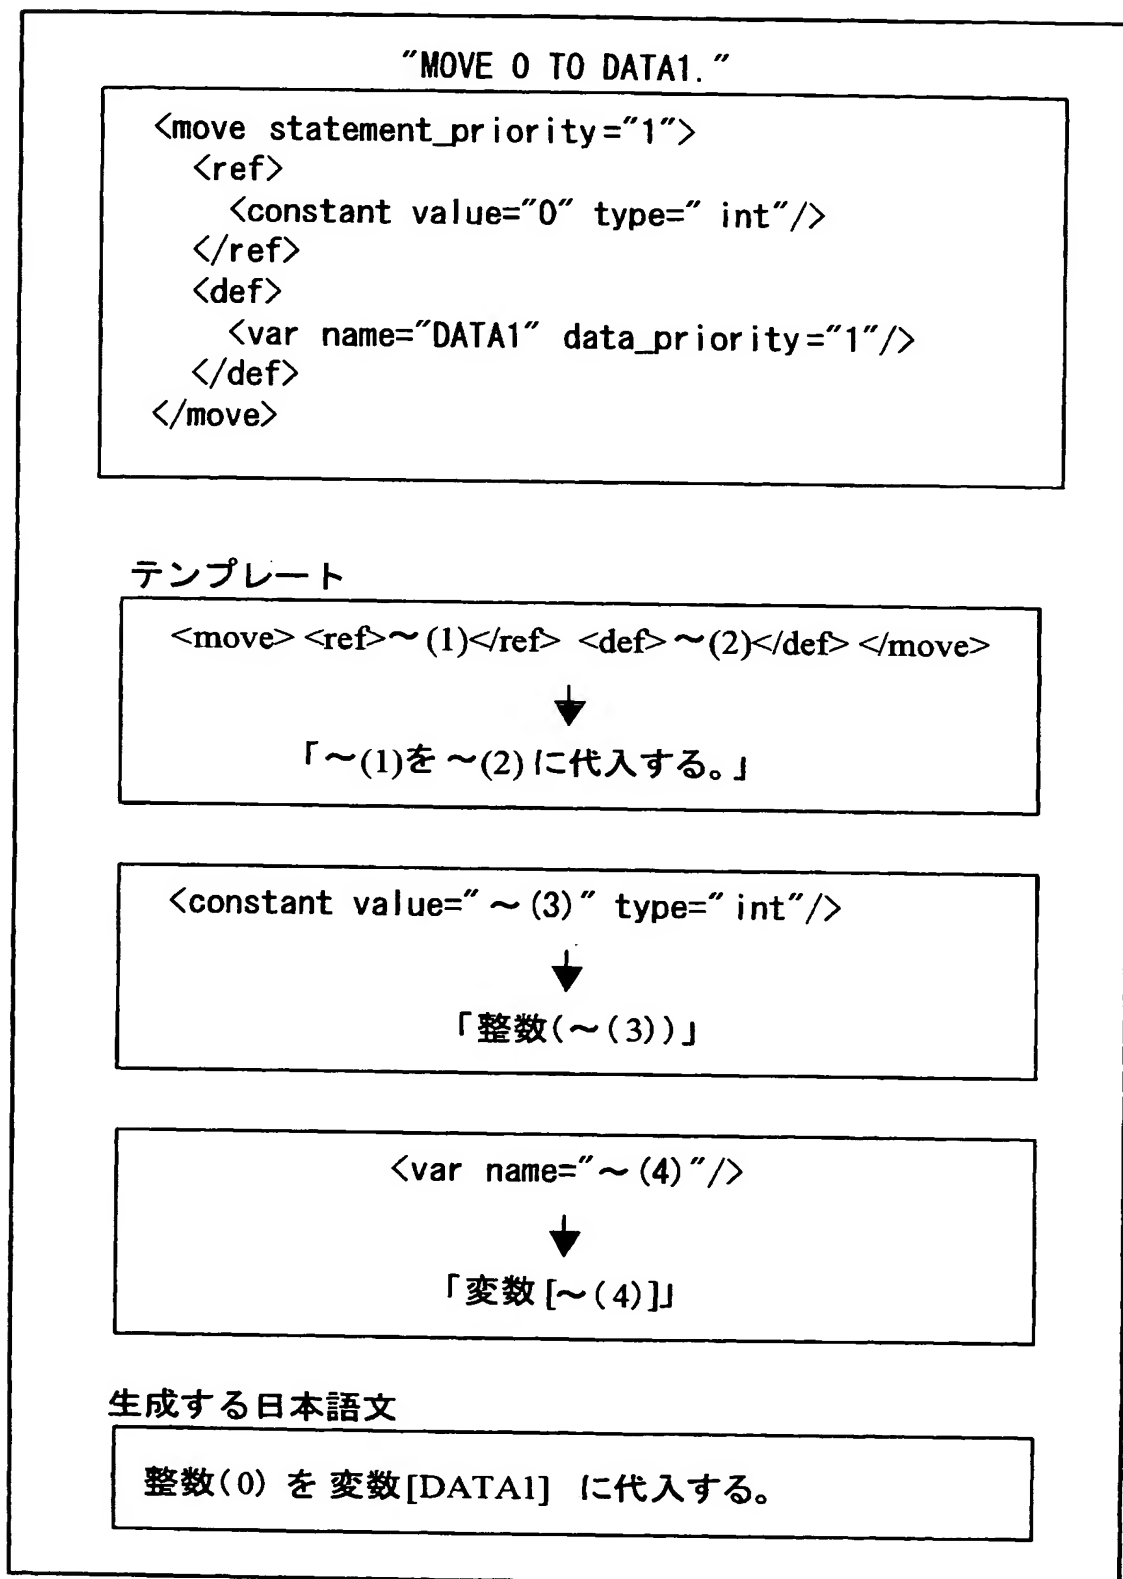 "MOVE 0 TO DATA1."
<move statement_priority="1">
<ref>
<constant value="0" type=" int"/>
</ref>
<def>
<var name="DATA1" data_priority="1"/>
</def>
</move>
テンプレート
<move> <ref>～(1)</ref> <def>～(2)</def> </move>
「～(1)を～(2)に代入する。」
<constant value="～(3)" type="int"/>
「整数(～(3))」
<var name="～(4)"/>
「変数[～(4)]」
生成する日本語文
整数(0) を 変数[DATA1] に代入する。